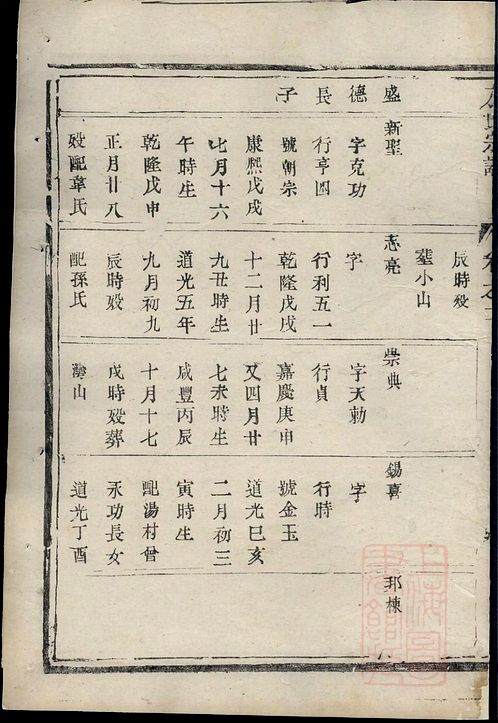 宗譜
盛德長子
新聖
字克功
行亨四
號朝宗
康熙戊戌
七月十六
午時生
乾隆戊申
正月廿八
歿配韋氏
辰時歿
塟小山
志亮
字
行利五一
乾隆戊戌
十二月廿
九丑時生
道光五年
九月初九
辰時歿
配孫氏
崇典
字天勅
行貞
嘉慶庚申
又四月廿
七未時生
咸豐丙辰
十月十七
戌時歿葬
灣山
錫喜
字
行時
號金玉
道光巳亥
二月初三
寅時生
配湯村曾
永功長女
道光丁酉
邦棟